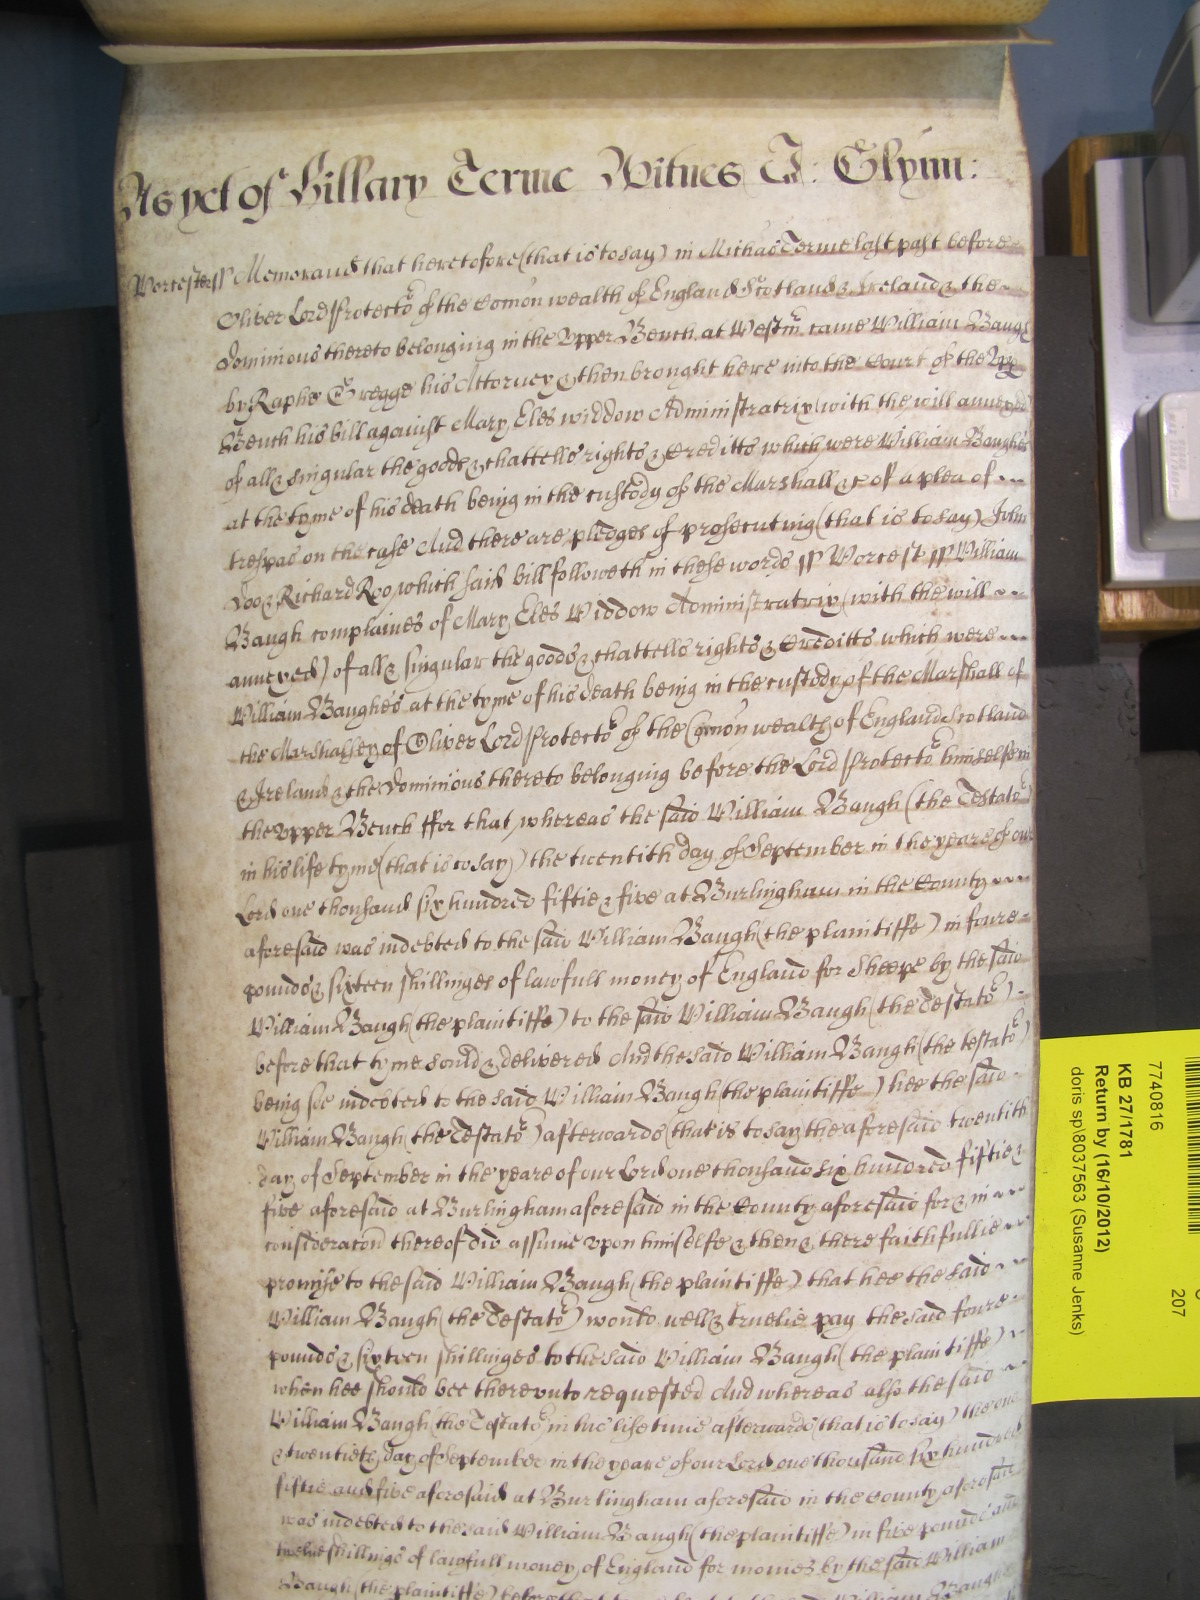 As yet of Hillary Terme Witnes J: Glynn:
Worcester ss Memorand that heretofore (that is to say) in Michas Terme last past before
Oliver Lord Protector of the Comon wealth of England Scotland & Ireland & the
dominions thereto belonging in the Upper Bench at Westm came William Baugh
by Raphe Gregge his Attorney & then brought here into the Court of the
Bench his bill against Mary Eles widdow Administratrix (with the will annexed)
of all & singular the goods & chattells rights & Creditts which were William Baughes
at the tyme of his death being in the custody of the Marshall &c of a plea of
trespas on the case And there are pledges of prosecuting (that is to say) John
Doo & Richard Roo, which said bill followeth in these words ss Worcest ss William
Baugh complaines of Mary Eles Widdow Administratrix (with the will
annexed) of all & singular the goods & chattells rights & Creditts which were
William Baughes at the tyme of his death being in the custody of the Marshall of
the Marshalsey of Oliver Lord Protector of the Comon wealth of England Scotland
& Ireland & the dominions thereto belonging before the Lord Protector himselfe in
the Upper Bench ffor that, whereas the said William Baugh (the Testator)
in his life tyme (that is to say) the twentith day of September in the yeare of our
Lord one thousand six hundred fiftie & five at Burlingham in the County
aforesaid was indebted to the said William Baugh (the plaintiffe) in foure
pounds & sixteen shillinges of lawfull money of England for Sheepe by the said
William Baugh (the plaintiffe) to the said William Baugh (the Testator)
before that tyme sould & delivered And the said William Baugh (the testator)
being soe indebted to the said William Baugh (the plaintiffe) hee the said
William Baugh (the Testator) afterwards (that is to say the aforesaid twentith
day of September in the yeare of our Lord one thousand six hundred fiftie &
five aforesaid at Burlingham aforesaid in the County aforesaid for & in
consideracon thereof did assume upon himselfe & then & there faithfullie
promise to the said William Baugh (the plaintiffe) that hee the said
William Baugh (the Testator) would well & truelie pay the said foure
pounds & sixteen shillinges to the said William Baugh (the plaintiffe)
when hee should bee thereunto requested And whereas also the said
William Baugh (the Testator in his life time afterwards (that is to say) the one
& twentieth day of September in the yeare of our Lord one thousand six hundred
fiftie and five aforesaid at Burlingham aforesaid in the County aforesaid
was indebted to the said William Baugh (the plaintiffe) in five pounds and
twelve shillings of lawfull money of England for monies by the said William
Baugh (the plaintiffe) before that William Baugh
7740816
KB 27/1781
Return by (16/10/2012)
doris sp\8037563 (Susanne Jenks)
207